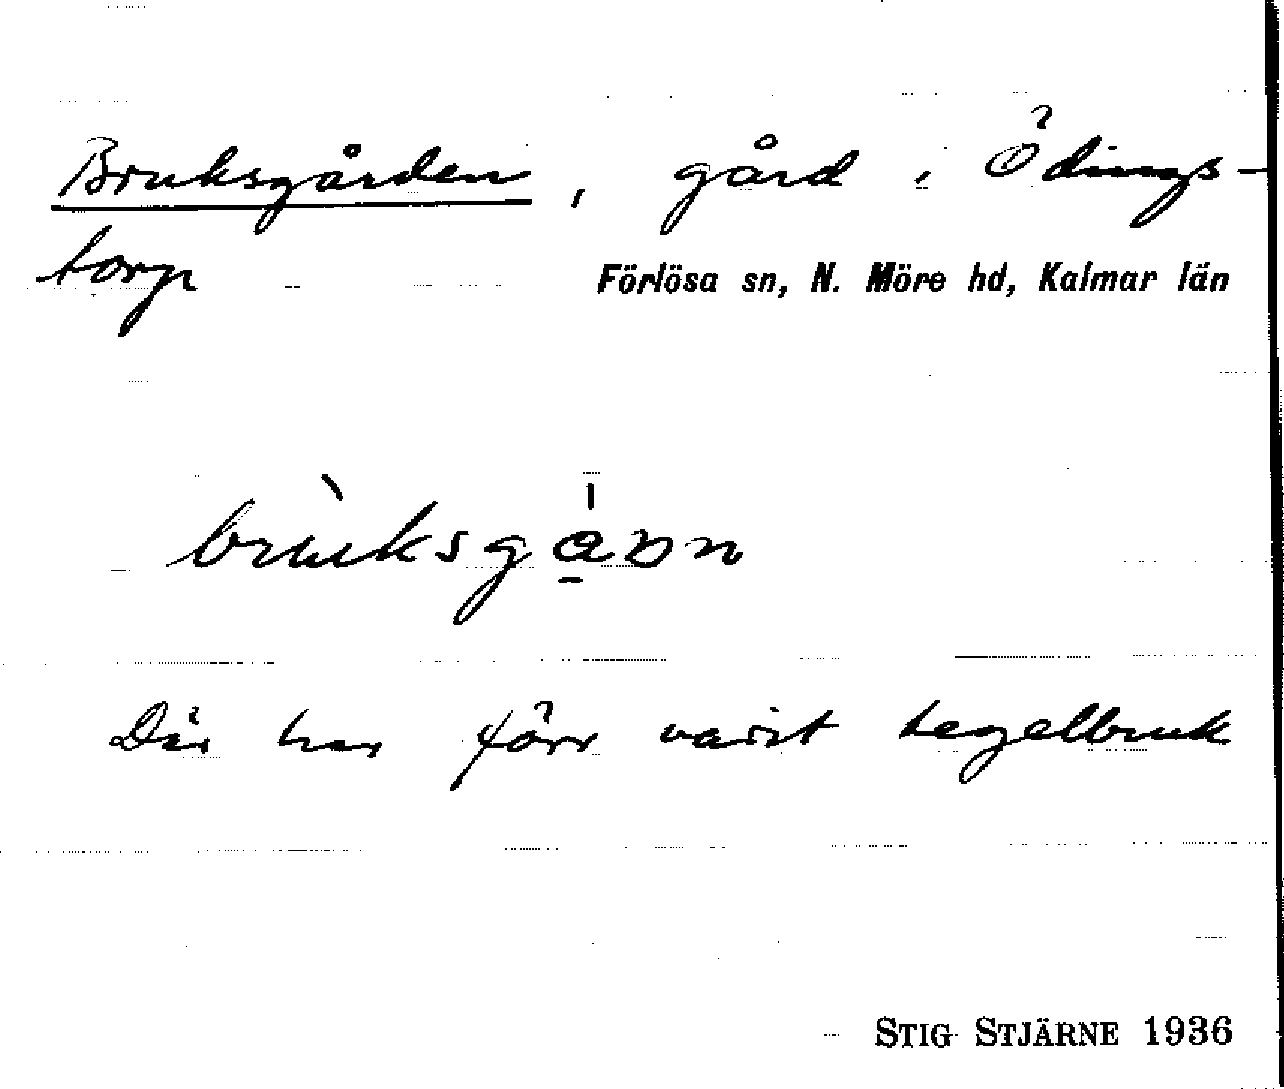 Bruksgården, gård i Ödings-
torp
Förlösa sn, N. Möre hd, Kalmar län
Där har förr varit tegelbruk
STIG STJÄRNE 1936